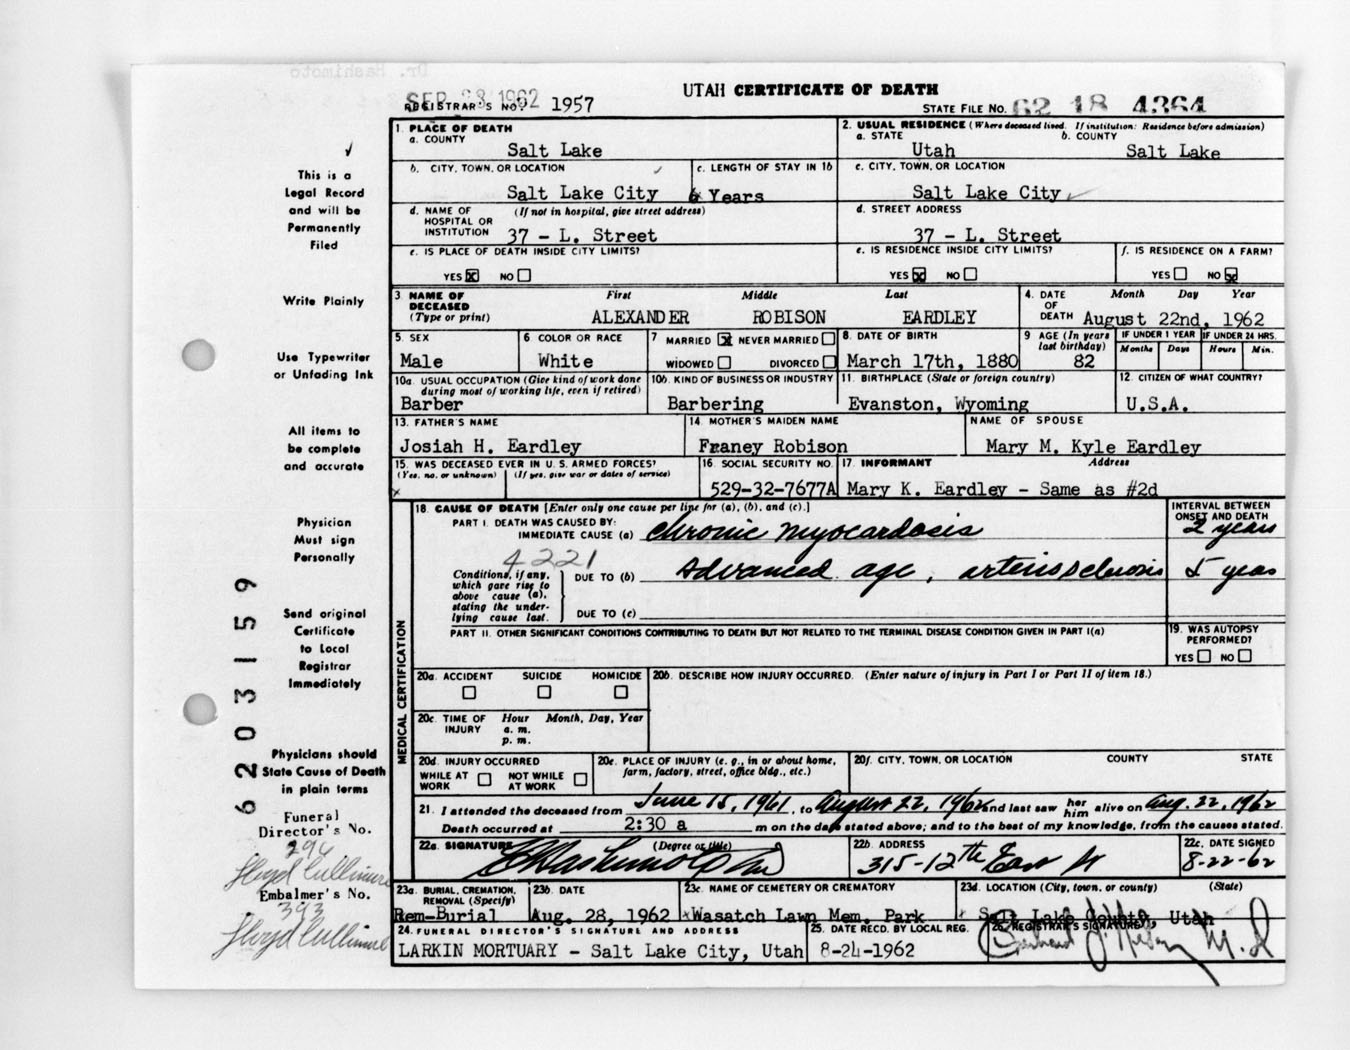 Dr. Hashimoto
UTAH CERTIFICATE OF DEATH
SEP 28 1962
REGISTRAR'S NO. 1957
STATE FILE NO. 62 18 4364
1. PLACE OF DEATH
a. COUNTY
Salt Lake
2. USUAL RESIDENCE (Where deceased lived. If institution: Residence before admission)
a. STATE b. COUNTY
Utah Salt Lake
b. CITY, TOWN, OR LOCATION
Salt Lake City
c. LENGTH OF STAY IN 1b
6 Years
c. CITY, TOWN, OR LOCATION
Salt Lake City
d. NAME OF HOSPITAL OR INSTITUTION (If not in hospital, give street address)
37 - L. Street
d. STREET ADDRESS
37 - L. Street
e. IS PLACE OF DEATH INSIDE CITY LIMITS?
YES X NO
e. IS RESIDENCE INSIDE CITY LIMITS?
YES X NO
f. IS RESIDENCE ON A FARM?
YES NO X
3. NAME OF DECEASED (Type or print)
First Middle Last
ALEXANDER ROBISON EARDLEY
4. DATE OF DEATH Month Day Year
August 22nd, 1962
5. SEX
Male
6. COLOR OR RACE
White
7. MARRIED X NEVER MARRIED
WIDOWED DIVORCED
8. DATE OF BIRTH
March 17th, 1880
9. AGE (In years last birthday)
82
IF UNDER 1 YEAR
Months Days
IF UNDER 24 HRS.
Hours Min.
10a. USUAL OCCUPATION (Give kind of work done during most of working life, even if retired)
Barber
10b. KIND OF BUSINESS OR INDUSTRY
Barbering
11. BIRTHPLACE (State or foreign country)
Evanston, Wyoming
12. CITIZEN OF WHAT COUNTRY?
U.S.A.
13. FATHER'S NAME
Josiah H. Eardley
14. MOTHER'S MAIDEN NAME
Franey Robison
NAME OF SPOUSE
Mary M. Kyle Eardley
15. WAS DECEASED EVER IN U.S. ARMED FORCES?
(Yes, no, or unknown) (If yes, give war or dates of service)
x
16. SOCIAL SECURITY NO.
529-32-7677A
17. INFORMANT Address
Mary K. Eardley - Same as #2d
MEDICAL CERTIFICATION
18. CAUSE OF DEATH [Enter only one cause per line for (a), (b), and (c).]
PART I. DEATH WAS CAUSED BY:
IMMEDIATE CAUSE (a) Chronic myocardosis
INTERVAL BETWEEN ONSET AND DEATH
2 years
4221
Conditions, if any, which gave rise to above cause (a), stating the underlying cause last.
DUE TO (b) Advanced age, arteriosclerosis 5 years
DUE TO (c)
PART II. OTHER SIGNIFICANT CONDITIONS CONTRIBUTING TO DEATH BUT NOT RELATED TO THE TERMINAL DISEASE CONDITION GIVEN IN PART I(a)
19. WAS AUTOPSY PERFORMED?
YES NO
20a. ACCIDENT SUICIDE HOMICIDE
20b. DESCRIBE HOW INJURY OCCURRED. (Enter nature of injury in Part I or Part II of item 18.)
20c. TIME OF INJURY Hour Month, Day, Year
a. m.
p. m.
20d. INJURY OCCURRED
WHILE AT WORK NOT WHILE AT WORK
20e. PLACE OF INJURY (e. g., in or about home, farm, factory, street, office bldg., etc.)
20f. CITY, TOWN, OR LOCATION COUNTY STATE
21. I attended the deceased from June 15, 1961, to August 22, 1962 and last saw her him alive on Aug. 22, 1962
Death occurred at 2:30 a m on the date stated above; and to the best of my knowledge, from the causes stated.
22a. SIGNATURE (Degree or title)
22b. ADDRESS
315-12th East St
22c. DATE SIGNED
8-22-62
23a. BURIAL, CREMATION, REMOVAL (Specify)
Rem-Burial
23b. DATE
Aug. 28, 1962
23c. NAME OF CEMETERY OR CREMATORY
Wasatch Lawn Mem. Park
23d. LOCATION (City, town, or county) (State)
Salt Lake County, Utah
24. FUNERAL DIRECTOR'S SIGNATURE AND ADDRESS
LARKIN MORTUARY - Salt Lake City, Utah
25. DATE RECD. BY LOCAL REG.
8-24-1962
26. REGISTRAR'S SIGNATURE
M. D
This is a
Legal Record
and will be
Permanently
Filed
Write Plainly
Use Typewriter
or Unfading Ink
All items to
be complete
and accurate
Physician
Must sign
Personally
Send original
Certificate
to Local
Registrar
Immediately
Physicians should
State Cause of Death
in plain terms
Funeral
Director's No.
296
Lloyd Cullimore
Embalmer's No.
393
Lloyd Cullimore
6203159